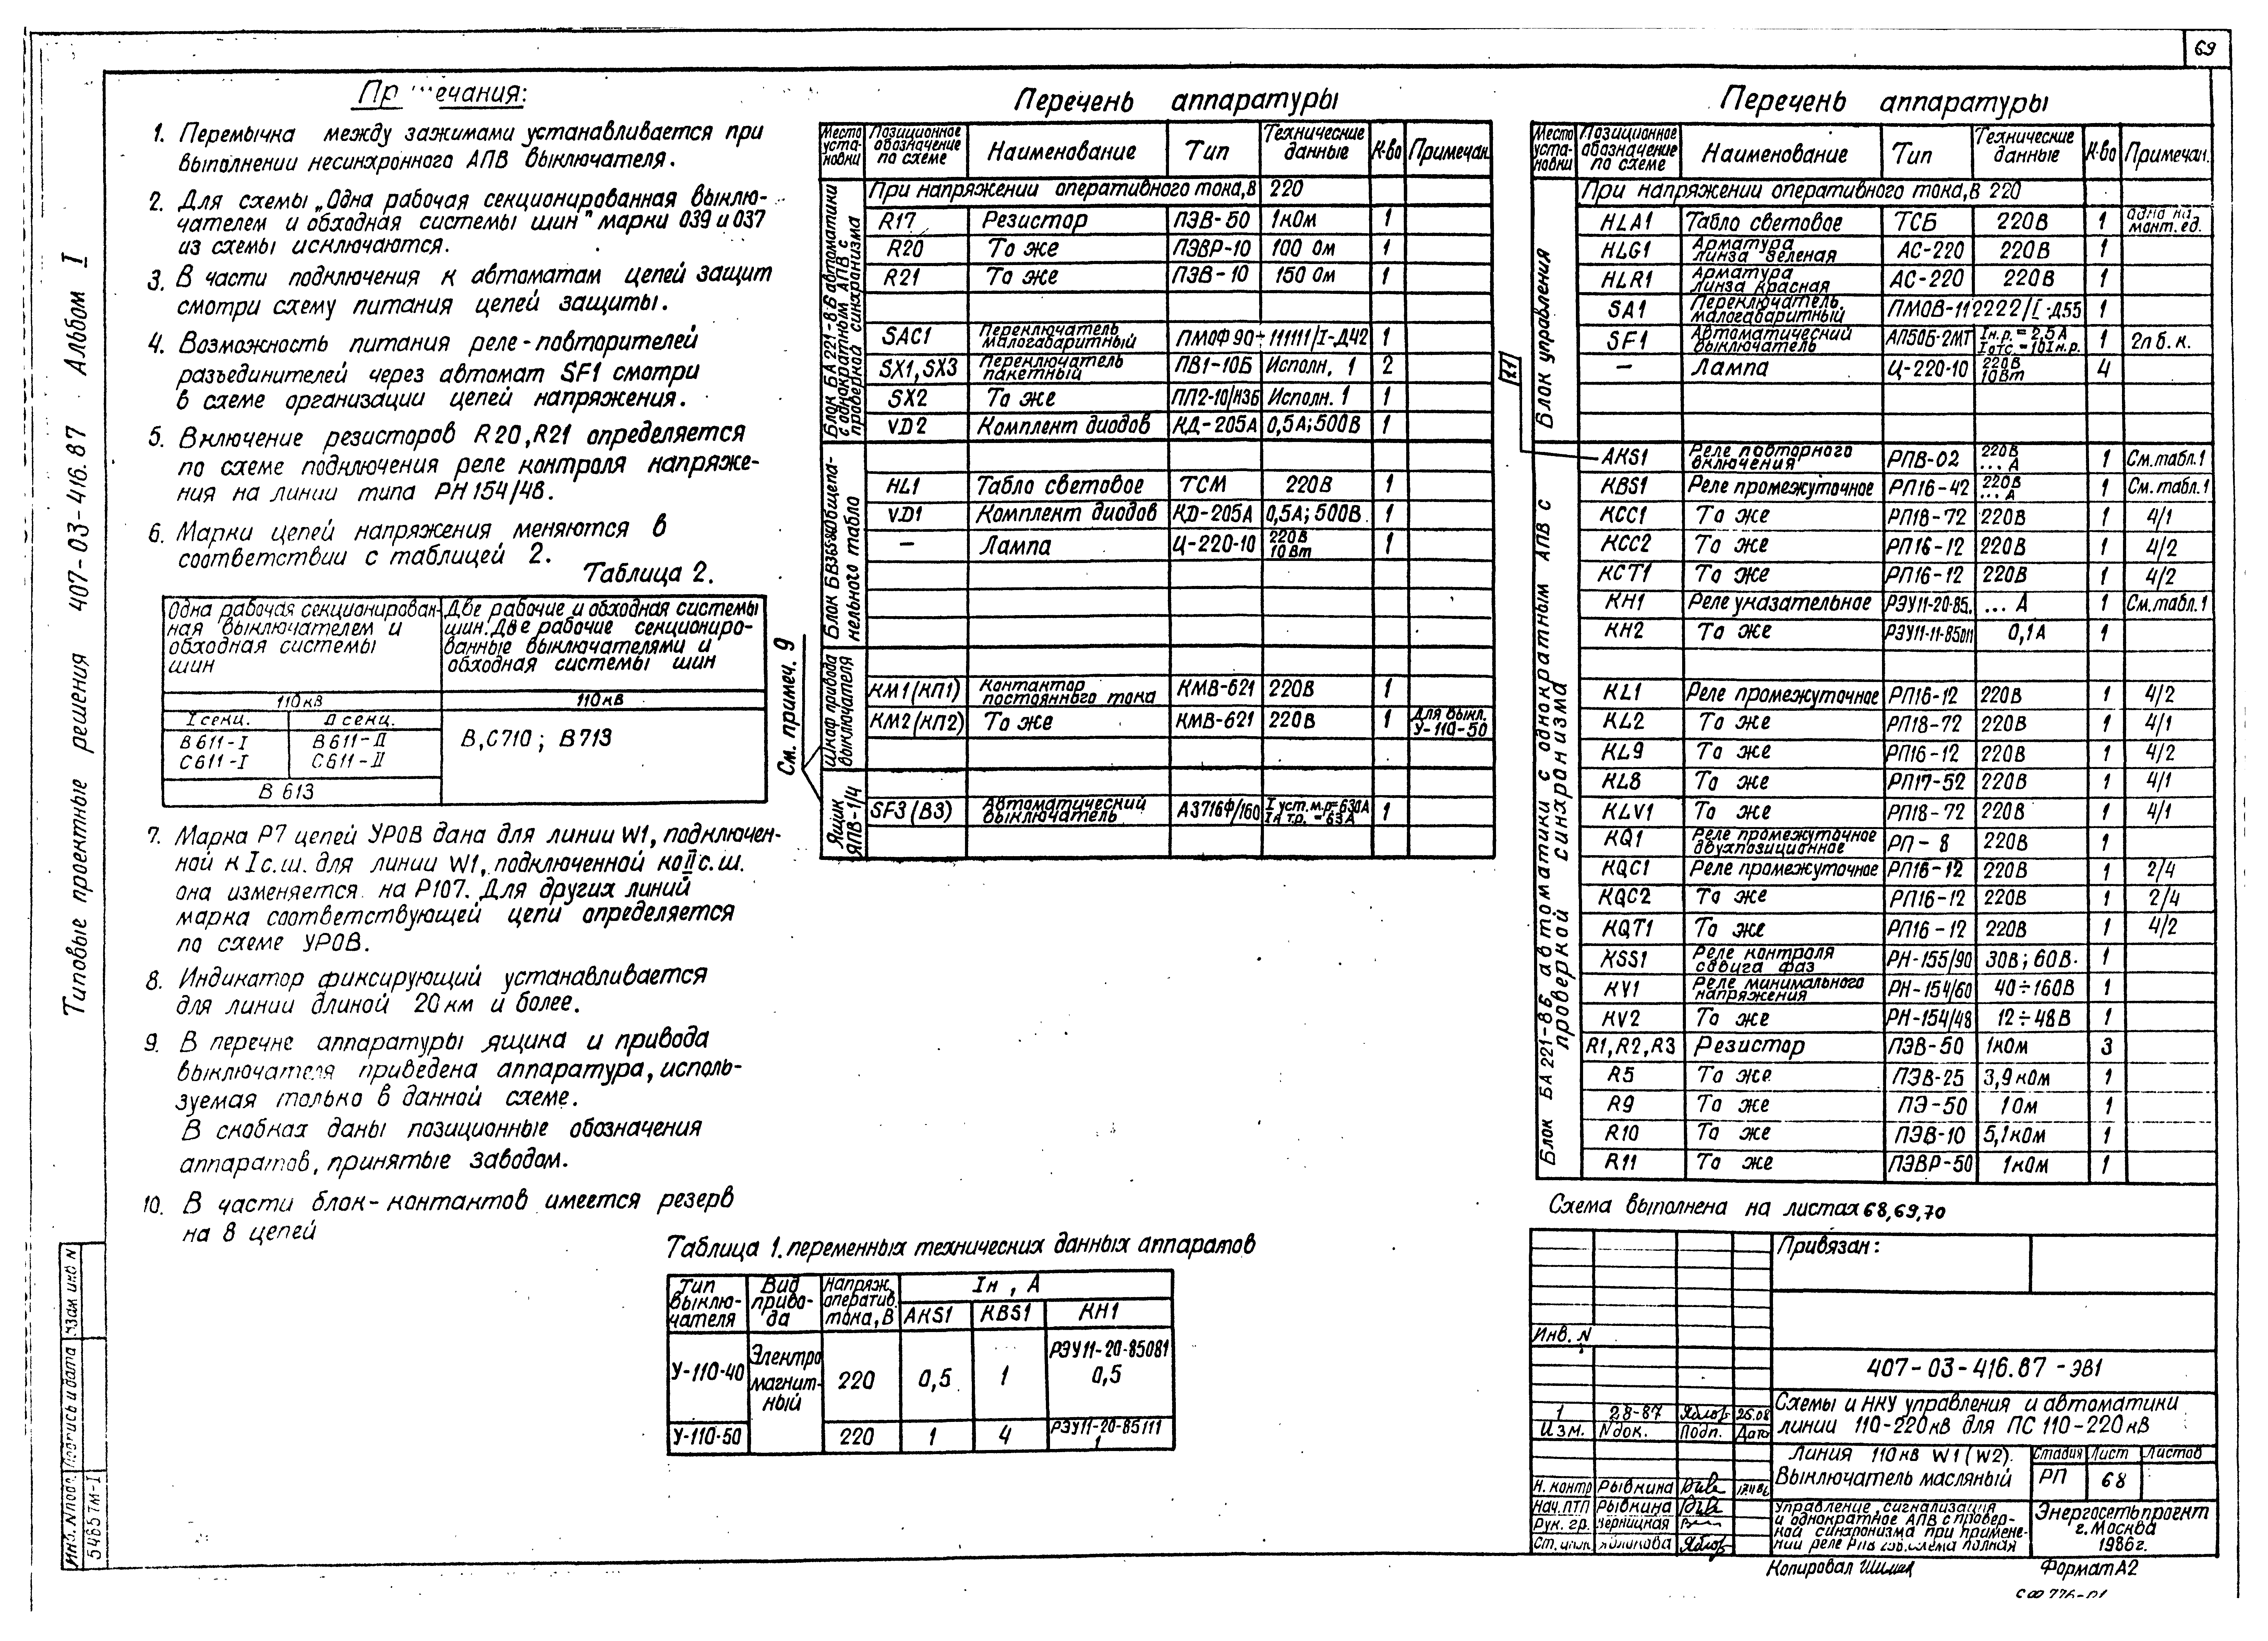 69
Типовые проектные решения 407-03-416.87 Альбом I
Пр...ечания:
1. Перемычка между зажимами устанавливается при
выполнении несинхронного АПВ выключателя.
2. Для схемы „Одна рабочая секционированная выклю-
чателем и обходная системы шин" марки 039 и 037
из схемы исключаются.
3. В части подключения к автоматам цепей защит
смотри схему питания цепей защиты.
4. Возможность питания реле-повторителей
разъединителей через автомат SF1 смотри
в схеме организации цепей напряжения.
5. Включение резисторов R20, R21 определяется
по схеме подключения реле контроля напряже-
ния на линии типа РН 154/48.
6. Марки цепей напряжения меняются в
соответствии с таблицей 2.
Таблица 2.
Одна рабочая секционирован-
ная выключателем и
обходная системы
шин
Две рабочие и обходная системы
шин. Две рабочие секциониро-
ванные выключателями и
обходная системы шин
110кв 110кв
I секц. II секц.
В 611-I В 611-II
С 611-I С 611-II
В 613
В, С710; В 713
7. Марка Р7 цепей УРОВ дана для линии W1, подключен-
ной к I с.ш. для линии W1, подключенной ко II с.ш.
она изменяется на Р107. Для других линий
марка соответствующей цепи определяется
по схеме УРОВ.
8. Индикатор фиксирующий устанавливается
для линии длиной 20 км и более.
9. В перечне аппаратуры ящика и привода
выключателя приведена аппаратура, исполь-
зуемая только в данной схеме.
В скобках даны позиционные обозначения
аппаратов, принятые заводом.
10. В части блок-контактов имеется резерв
на 8 цепей
Таблица 1. переменных технических данных аппаратов
Тип выклю-чателя Вид приво-да Напряж. оператив. тока, В Iн, А
AKS1 KBS1 KH1
У-110-40 Электро магнит-ный 220 0,5 1 РЭУ11-20-85081 0,5
У-110-50 220 1 4 РЭУ11-20-85111 1
Перечень аппаратуры
Место уста-новки Позиционное обозначение по схеме Наименование Тип Технические данные К-во Примечан.
При напряжении оперативного тока, В 220
Блок БА 221-86 автоматики с однократным АПВ с проверкой синхронизма
R17 Резистор ПЭВ-50 1ком 1
R20 То же ПЭВР-10 100 ом 1
R21 То же ПЭВ-10 150 ом 1
SAC1 Переключатель малогабаритный ПМОФ 90-111111/I-Д42 1
SX1, SX3 Переключатель пакетный ПВ1-10Б Исполн. 1 2
SX2 То же ПП2-10/Н3Б Исполн. 1 1
VD2 Комплект диодов КД-205А 0,5А; 500В 1
HL1 Табло световое ТСМ 220В 1
VD1 Комплект диодов КД-205А 0,5А; 500В 1
— Лампа Ц-220-10 220В 10Вт 1
См. примеч. 9
Шкаф привода выключателя
КМ1 (КП1) Контактор постоянного тока КМВ-621 220В 1
КМ2 (КП2) То же КМВ-621 220В 1 Для выкл. У-110-50
Ящик ЯПВ-1/4
SF3 (В3) Автоматический выключатель А3716Ф/160 I уст. м.р=630А Iн тр. = 63А 1
Перечень аппаратуры
Место уста-новки Позиционное обозначение по схеме Наименование Тип Технические данные К-во Примечан.
При напряжении оперативного тока, В 220
Блок управления
HLA1 Табло световое ТСБ 220В 1 одна на монт. ед.
HLG1 Арматура линза зеленая АС-220 220В 1
HLR1 Арматура линза красная АС-220 220В 1
SA1 Переключатель малогабаритный ПМОВ-112222/I-Д55 1
SF1 Автоматический выключатель АП50Б-2МТ Iн.р. = 2,5А Iотс. = 10Iн.р. 1 2п б. к.
— Лампа Ц-220-10 220В 10Вт 4
Блок БА 221-86 автоматики с однократным АПВ с проверкой синхронизма
AKS1 Реле повторного включения РПВ-02 220В ... А 1 См. табл. 1
KBS1 Реле промежуточное РП16-42 220В ... А 1 См. табл. 1
KCC1 То же РП18-72 220В 1 4/1
KCC2 То же РП16-12 220В 1 4/2
KCT1 То же РП16-12 220В 1 4/2
KH1 Реле указательное РЭУ11-20-85. ... А 1 См. табл. 1
KH2 То же РЭУ11-11-85011 0,1А 1
KL1 Реле промежуточное РП16-12 220В 1 4/2
KL2 То же РП18-72 220В 1 4/1
KL9 То же РП16-12 220В 1 4/2
KL8 То же РП17-52 220В 1 4/1
KLV1 То же РП18-72 220В 1 4/1
KQ1 Реле промежуточное двухпозиционное РП-8 220В 1
KQC1 Реле промежуточное РП16-12 220В 1 2/4
KQC2 То же РП16-12 220В 1 2/4
KQT1 То же РП16-12 220В 1 4/2
KSS1 Реле контроля сдвига фаз РН-155/90 30В; 60В 1
KV1 Реле минимального напряжения РН-154/60 40÷160В 1
KV2 То же РН-154/48 12÷48В 1
R1, R2, R3 Резистор ПЭВ-50 1ком 3
R5 То же ПЭВ-25 3,9 ком 1
R9 То же ПЭ-50 1 Ом 1
R10 То же ПЭВ-10 5,1 ком 1
R11 То же ПЭВР-50 1 ком 1
Схема выполнена на листах 68, 69, 70
Привязан:
Инв. N
407-03-416.87-ЭВ1
1 28-87 25.08
Изм. N док. Подп. Дата
Схемы и НКУ управления и автоматики
линии 110-220кв для ПС 110-220кВ
Линия 110кв W1 (W2).
Выключатель масляный
Стадия Лист Листов
РП 68
Н. контр Рывкина
Нач. ПТП Рывкина
Рук. гр. Черницкая
Управление, сигнализация
и однократное АПВ с провер-
кой синхронизма при примене-
нии реле РПВ
Энергосетьпроект
г. Москва
1986г.
Копировал
Формат А2
Инв. N подл. Подпись и дата Взам инв N
5465 ТМ-I